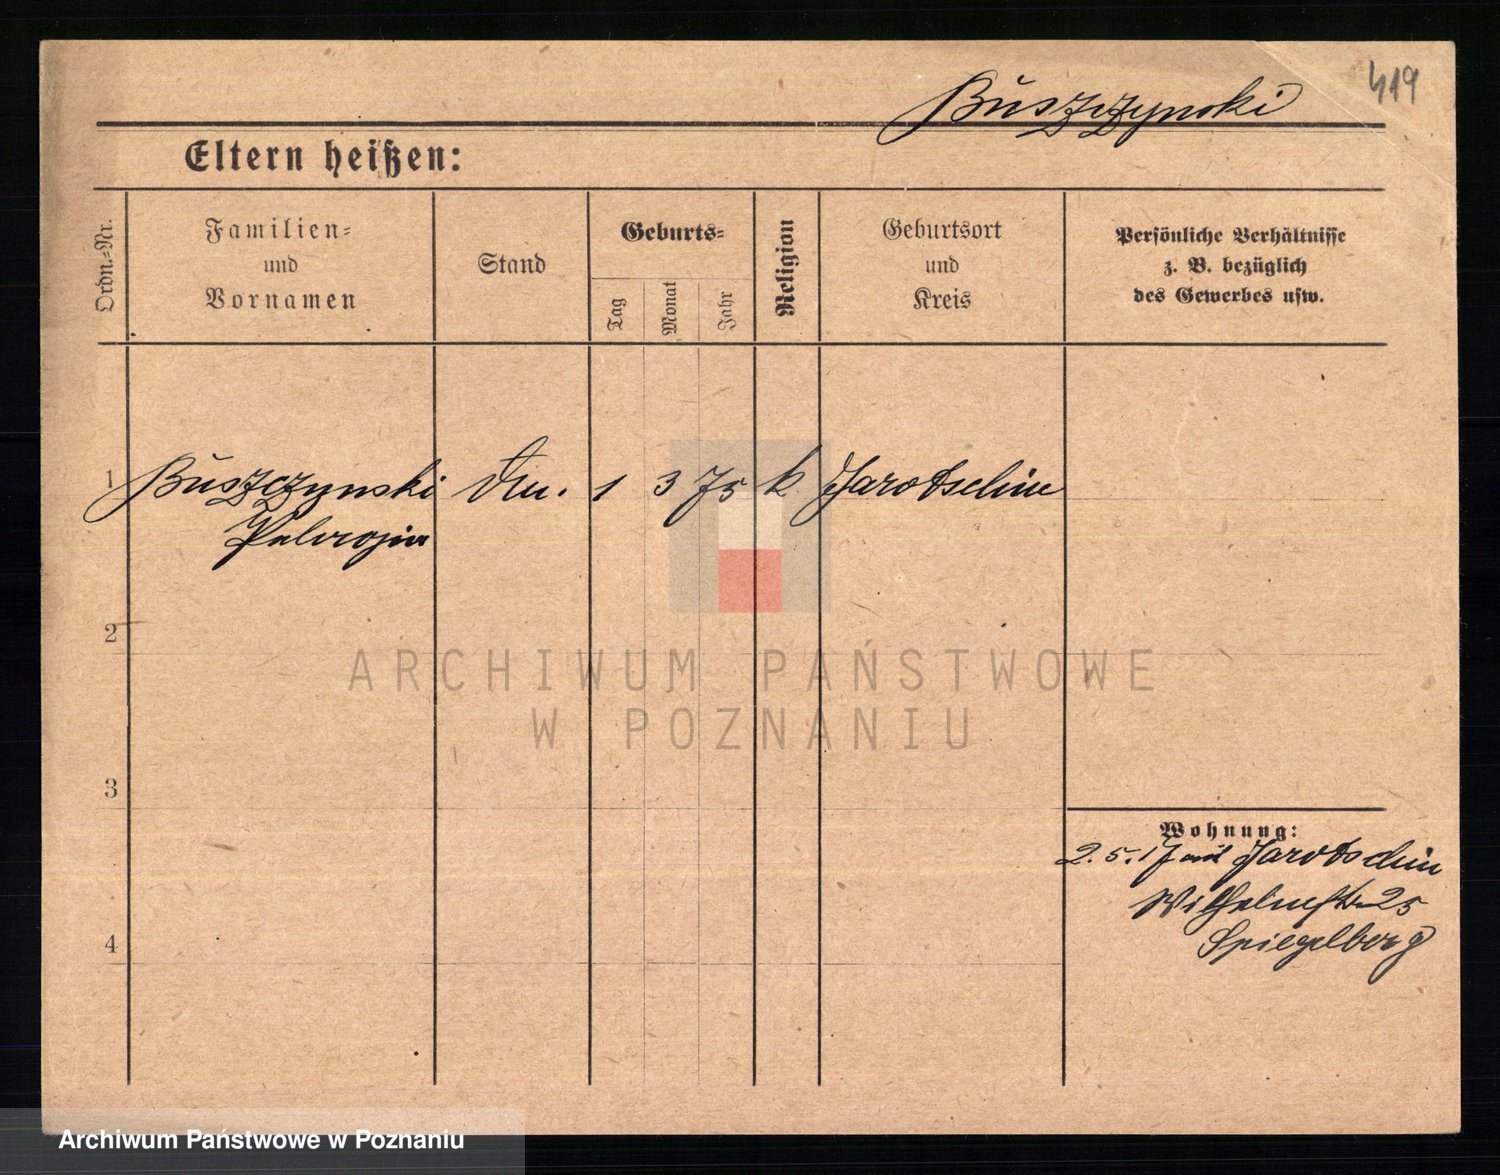 419
Buszczynski
Eltern heißen:
Ordn.-Nr.
Familien-
und
Vornamen
Stand
Geburts-
Tag
Monat
Jahr
Religion
Geburtsort
und
Kreis
Persönliche Verhältnisse
z. B. bezüglich
des Gewerbes usw.
1 Buszczynski 1 3 75 k. Jarotschin
2
3
4
Wohnung:
2. 5. 17 Jarotschin
Wilhelmstr 25
Spiegelberg
ARCHIWUM PAŃSTWOWE
W POZNANIU
Archiwum Państwowe w Poznaniu